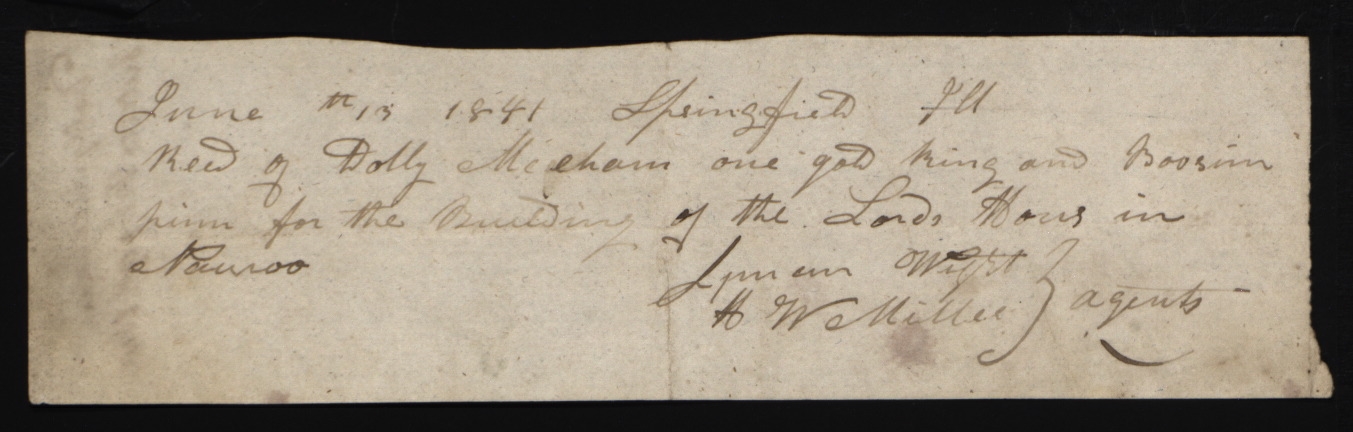 June th 13 1841 Springfield Ill
Recd of Dolly Mecham one gold Ring and Boosim
pinn for the Building of the Lords Hous in
Nauvoo
Lyman Wight
H W Miller } agents